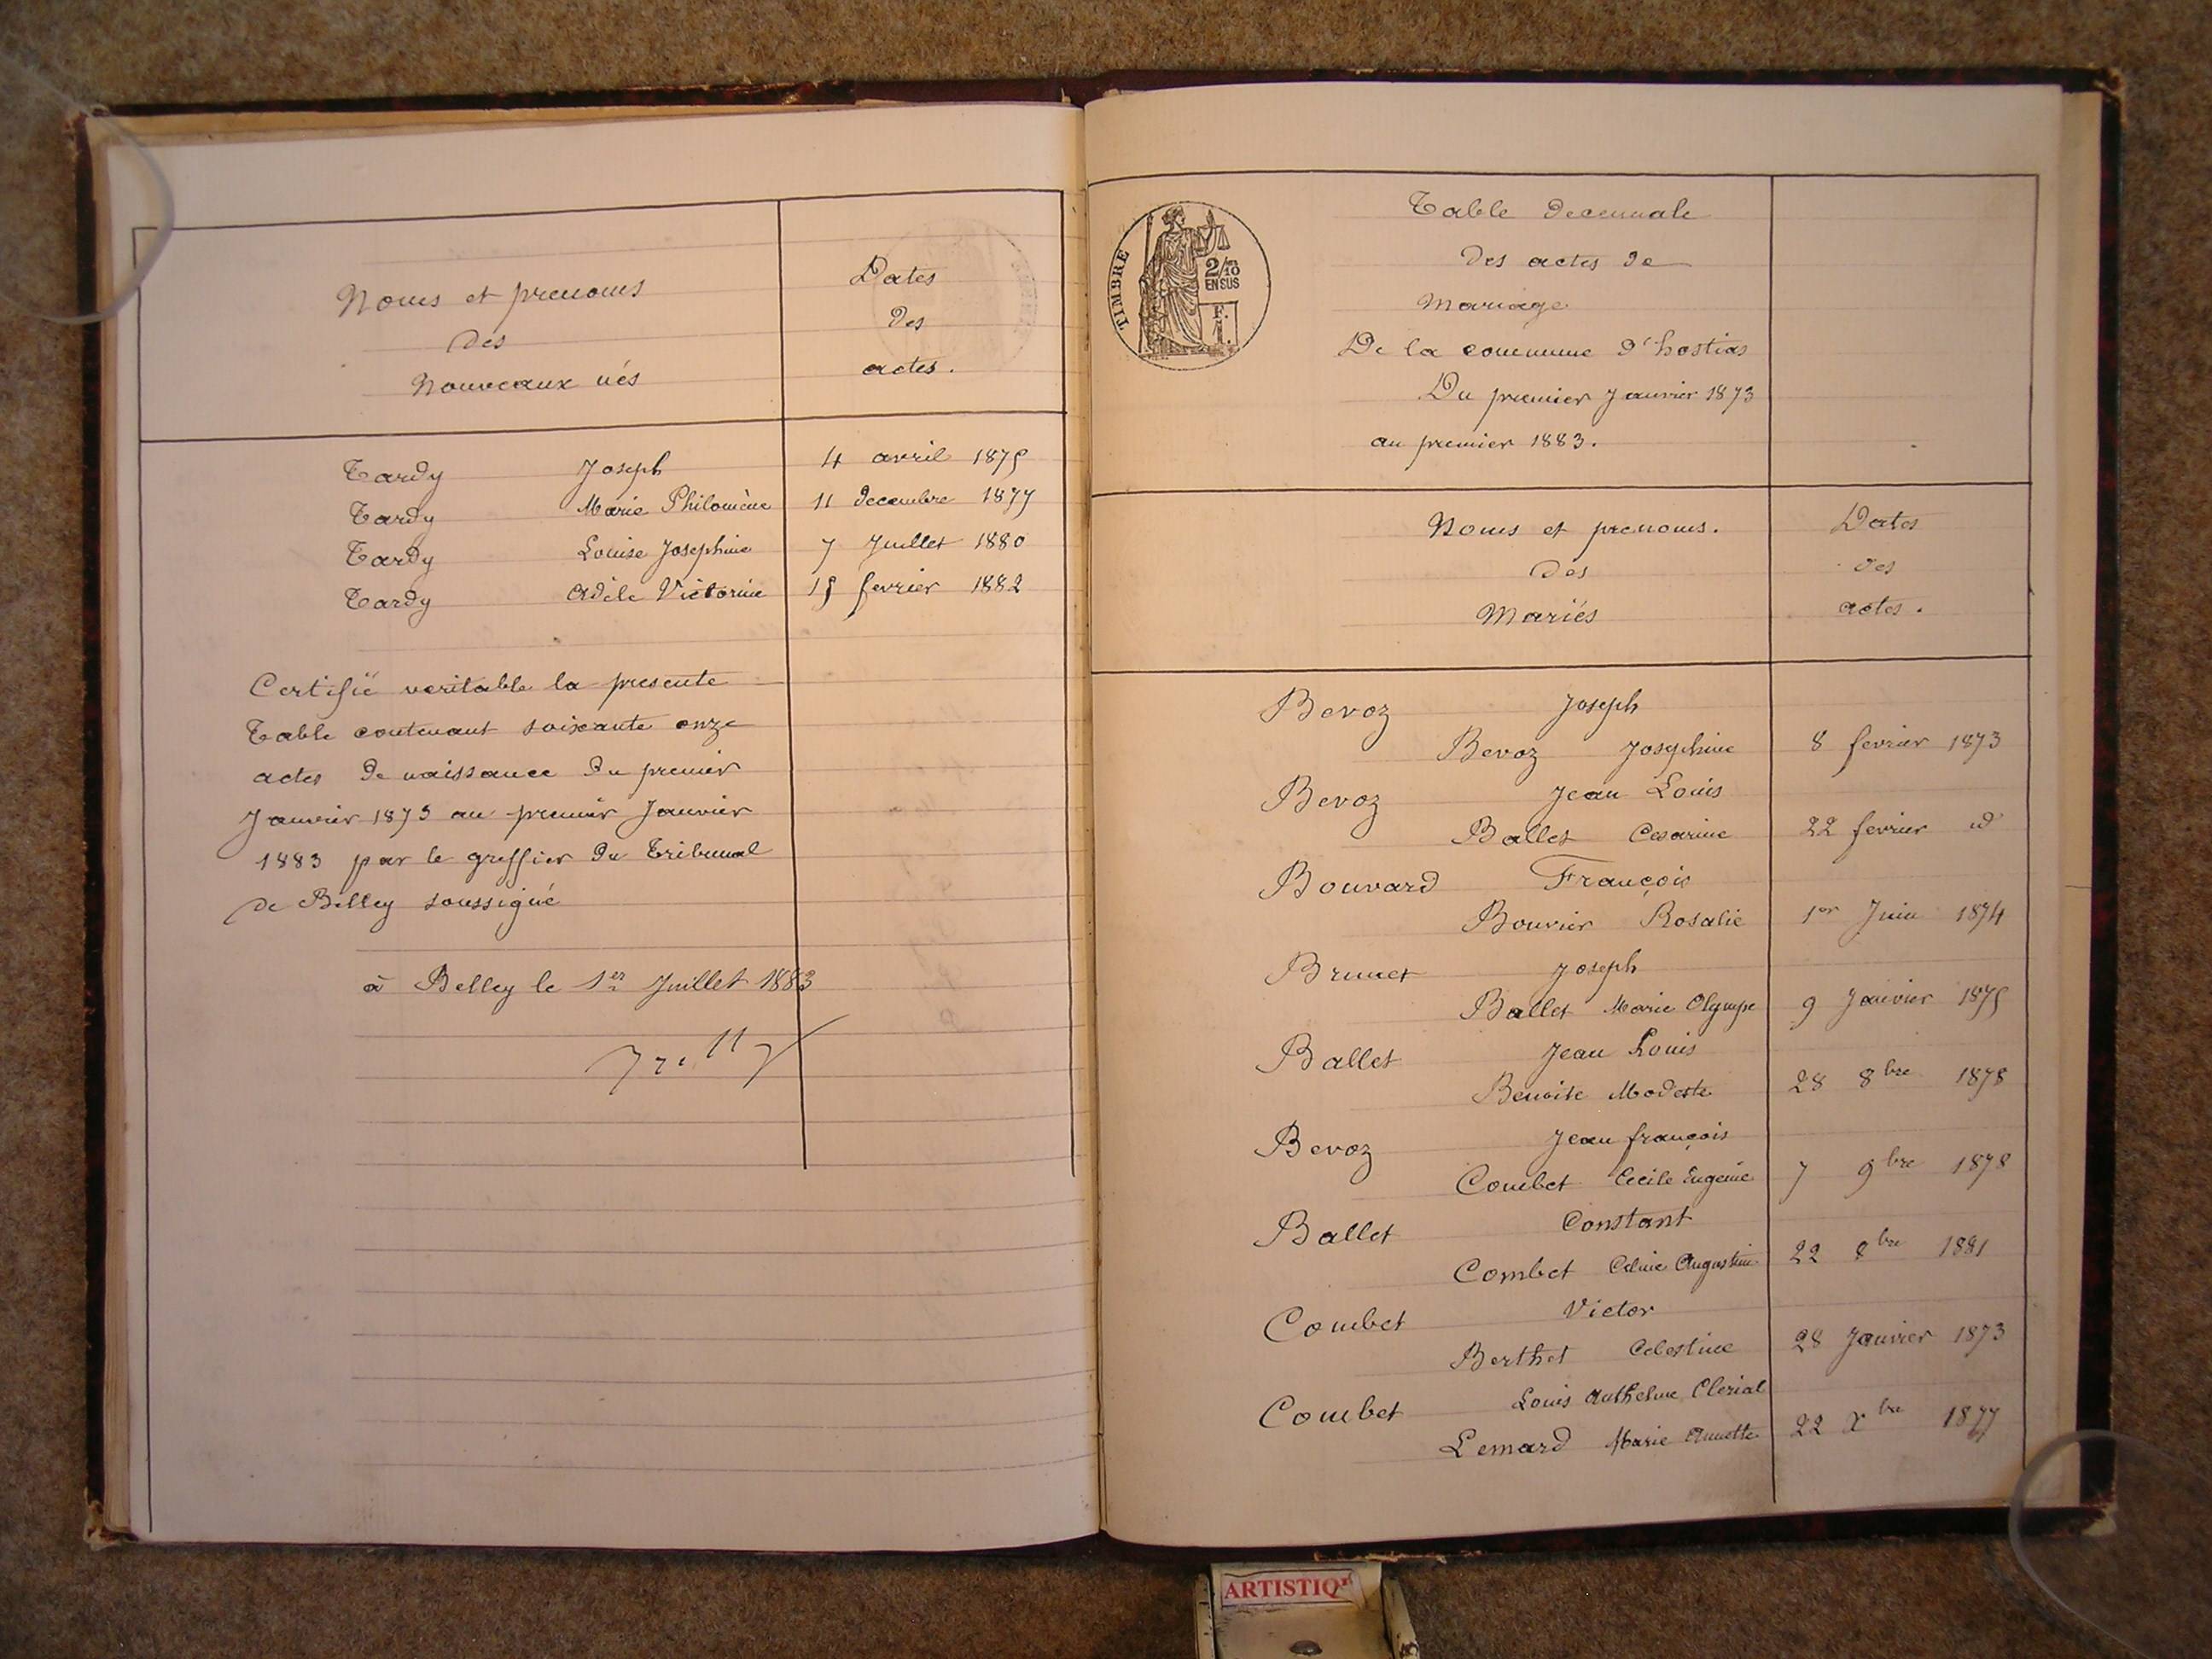 Noms et prenoms
Des
Nouveaux nés
Dates
des
actes.
Tardy Joseph 4 avril 1875
Tardy Marie Philomène 11 decembre 1877
Tardy Louise Josephine 7 Juillet 1880
Tardy Adèle Victorine 15 fevrier 1882
Certifié veritable la presente
Table contenant soixante onze
actes de naissance du premier
Janvier 1873 au premier Janvier
1883 par le greffier du Tribunal
de Belley soussigné
à Belley le 1er Juillet 1883
TIMBRE
2/10
EN SUS
F.
1.
Table decennale
des actes de
Mariage
De la commune d'hostias
Du premier Janvier 1873
au premier 1883.
Noms et prenoms.
Des
Mariés
Dates
des
actes.
Bevoz Joseph
Bevoz Josephine 8 fevrier 1873
Bevoz Jean Louis
Ballet Cesarine 22 fevrier id
Bouvard François
Bouvier Rosalie 1er Juin 1874
Brunet Joseph
Ballet Marie Olympe 9 Janvier 1875
Ballet Jean Louis
Benoite Modeste 28 8bre 1878
Bevoz Jean françois
Combet Cecile Eugenie 7 9bre 1878
Ballet Constant
Combet Celine Augustine 22 8bre 1881
Combet Victor
Berthet Celestine 28 Janvier 1873
Combet Louis Anthelme Clerial
Lemard Marie Annette 22 Xbre 1877
ARTISTIQ